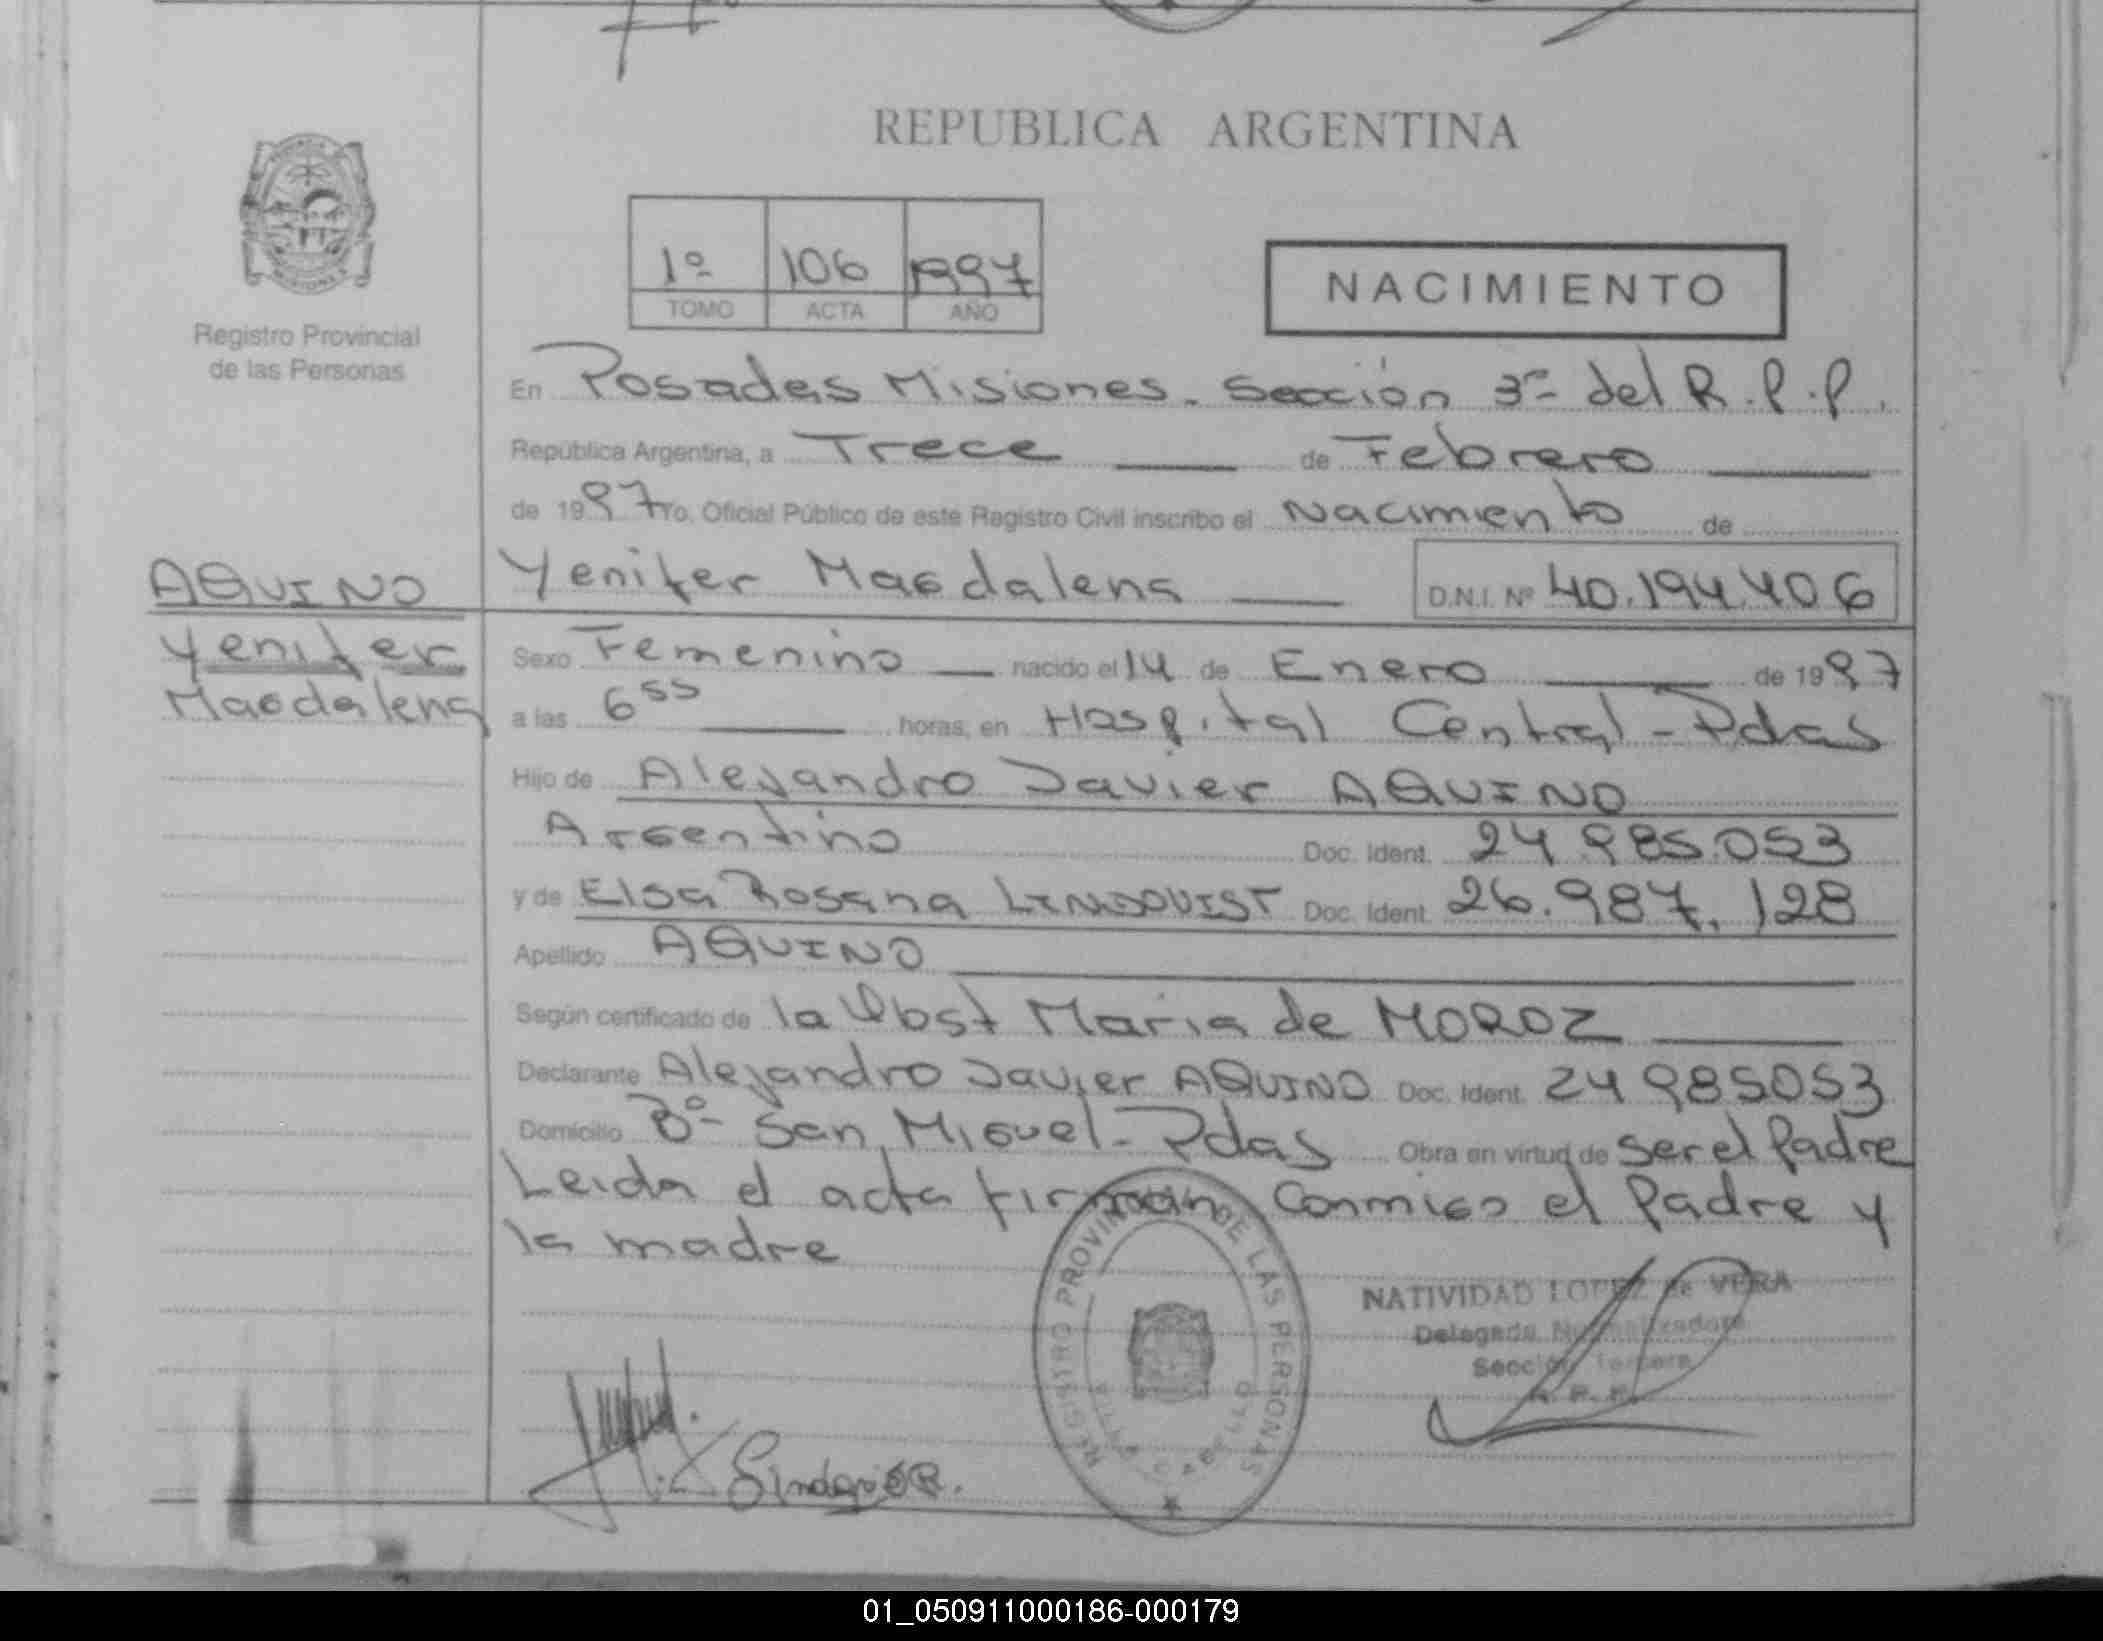 REPUBLICA ARGENTINA
1º 106 1997
TOMO ACTA AÑO
NACIMIENTO
Registro Provincial
de las Personas
En Posadas Misiones. Sección 3ª del R.P.P.
República Argentina, a Trece de Febrero
de 1997 Yo, Oficial Público de este Registro Civil inscribo el Nacimiento de
AQUINO
Yenifer
Magdalena
Yenifer Magdalena D.N.I. Nº 40.194.406
Sexo Femenino nacido el 14 de Enero de 1997
a las 6⁵⁵ horas, en Hospital Central - Pdas
Hijo de Alejandro Javier AQUINO
Argentino Doc. Ident. 24 985.053
y de Elsa Rosana LINDQUIST Doc. Ident. 26.987.128
Apellido AQUINO
Según certificado de la Obst Maria de MOROZ
Declarante Alejandro Javier AQUINO Doc. Ident. 24 985053
Domicilio Bº San Miguel - Pdas Obra en virtud de ser el Padre
Leida el acta firman conmigo el Padre y
la madre
REGISTRO PROVINCIAL DE LAS PERSONAS
VILLA CABELLO
NATIVIDAD LOPEZ de VERA
Delegada Normalizadora
Sección Tercera
R. P. P.
01_050911000186-000179